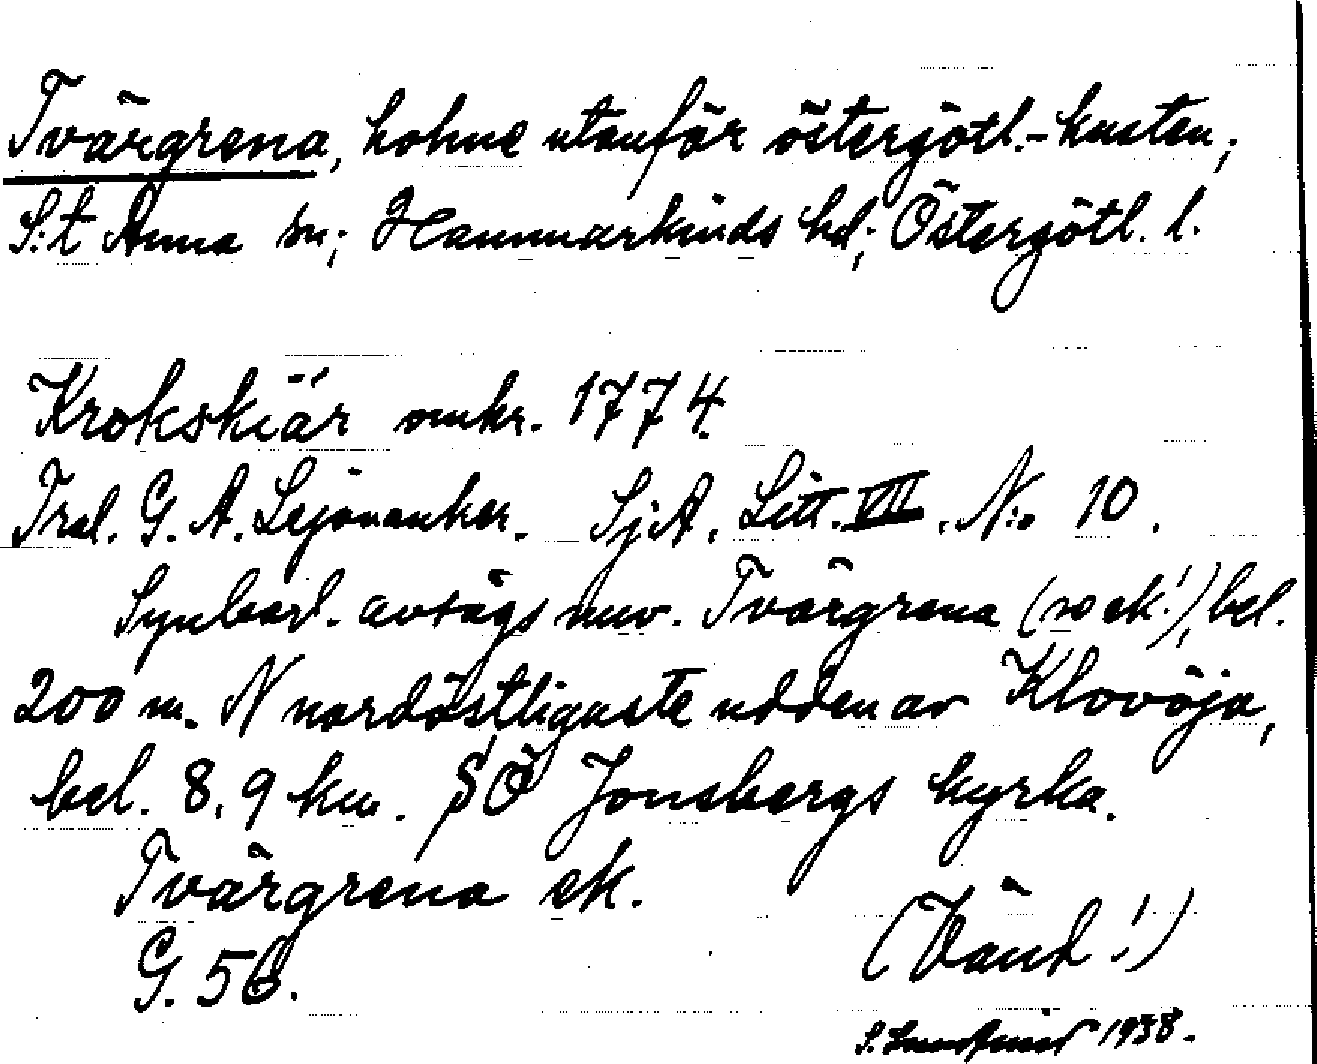 Tvärgrena, holme utanför östergötl.-kusten;
S:t Anna sn; Hammarkinds hd; Östergötl. l.
Krokskiär omkr. 1774.
Trol. G. A. Lejonanker. SjA. Litt. VII. N:o 10.
Synbarl. avsågs nuv. Tvärgrena (so ek!), bel.
200 m. N nordöstligaste udden av Klovöja,
bel. 8,9 km. SÖ Jonsbergs kyrka.
Tvärgrena ek.
G. 56.
(Vänd!)
S. 1938.